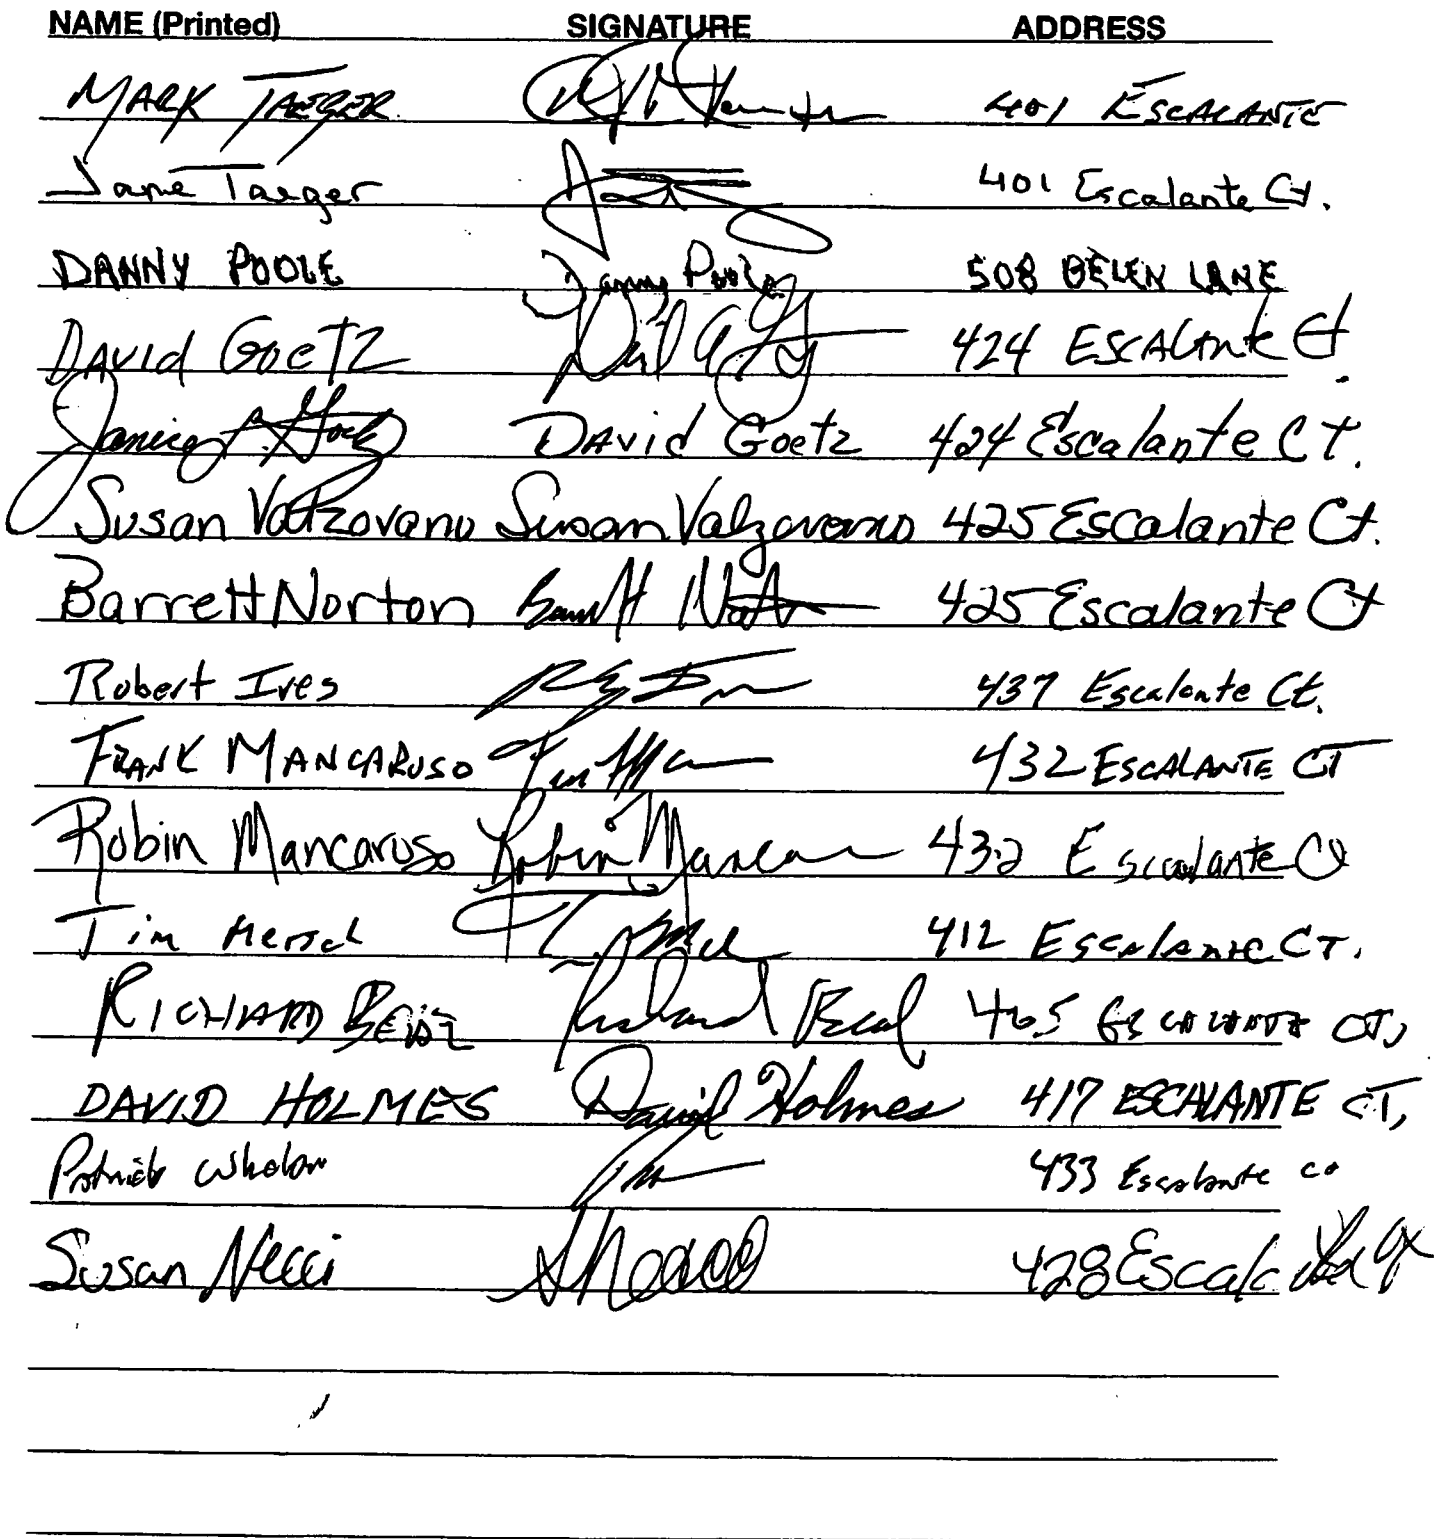 NAME (Printed) SIGNATURE ADDRESS
MARK TAEGER 401 ESCALANTE
Jane Taeger 401 Escalante Ct.
DANNY POOLE Danny Poole 508 BELEN LANE
DAVID GOETZ 424 ESCALANTE Ct.
Janice Goetz DAVID Goetz 424 Escalante CT.
Susan Valzovano Susan Valzovano 425 Escalante Ct.
Barrett Norton Barrett Norton 425 Escalante Ct
Robert Ives 437 Escalante Ct.
FRANK MANCARUSO 432 ESCALANTE CT
Robin Mancaruso Robin 432 Escalante Ct
Tim 412 Escalante CT.
RICHARD Richard 405 ESCALANTE CT,
DAVID HOLMES David Holmes 417 ESCALANTE CT,
Patrick Whelan 433 Escalante
Susan Necci 428